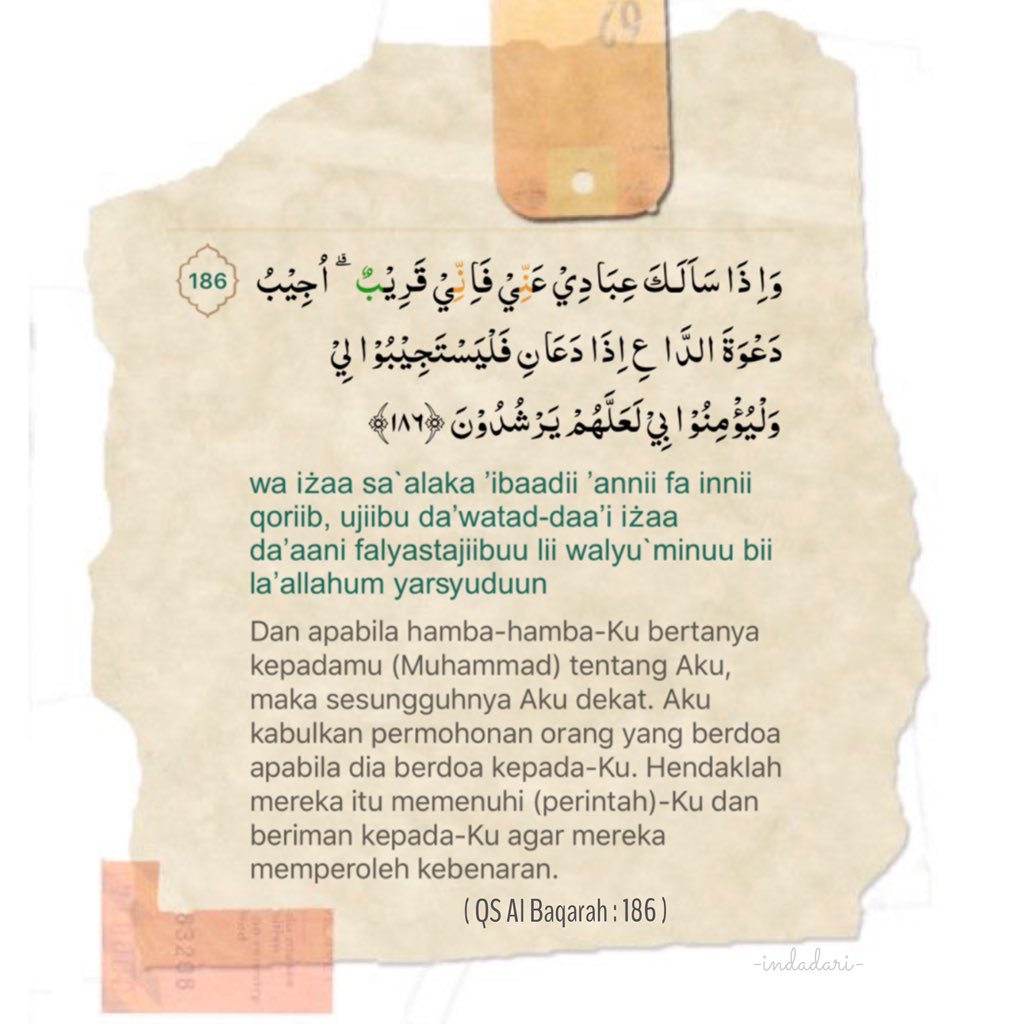 186
وَاِ ذَا سَاَلَـكَ عِبَادِيْ عَنِّيْ فَاِ نِّيْ قَرِيْبٌ ۗ اُجِيْبُ
دَعْوَةَ الدَّا عِ اِذَا دَعَا نِ فَلْيَسْتَجِيْبُوْا لِيْ
وَلْيُؤْمِنُوْا بِيْ لَعَلَّهُمْ يَرْشُدُوْنَ ﴿١٨٦﴾
wa iżaa sa`alaka ’ibaadii ’annii fa innii
qoriib, ujiibu da’watad-daa’i iżaa
da’aani falyastajiibuu lii walyu`minuu bii
la’allahum yarsyuduun
Dan apabila hamba-hamba-Ku bertanya
kepadamu (Muhammad) tentang Aku,
maka sesungguhnya Aku dekat. Aku
kabulkan permohonan orang yang berdoa
apabila dia berdoa kepada-Ku. Hendaklah
mereka itu memenuhi (perintah)-Ku dan
beriman kepada-Ku agar mereka
memperoleh kebenaran.
( QS Al Baqarah : 186 )
-indadari-